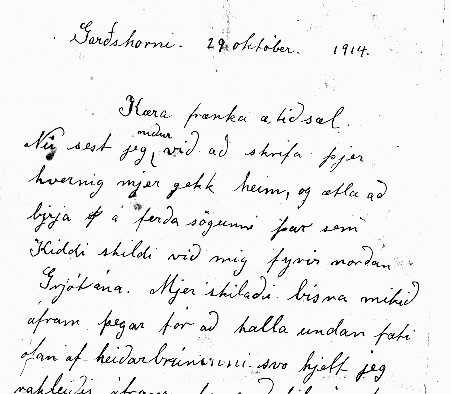 Garðshorni. 29 október. 1914.
Kæra frænka æ tíð sæl.
Nú sest jeg niður við að skrifa þjer
hvernig mjer gekk heim, og ætla að
birja á ferða sögunni þar sem
Kiddi skildi við mig fyrir norðan
Grjótána. Mjer skilaði bísna mikið
áfram þegar fór að halla undan fæti
ofan af heiðarbrúninni svo hjelt jeg